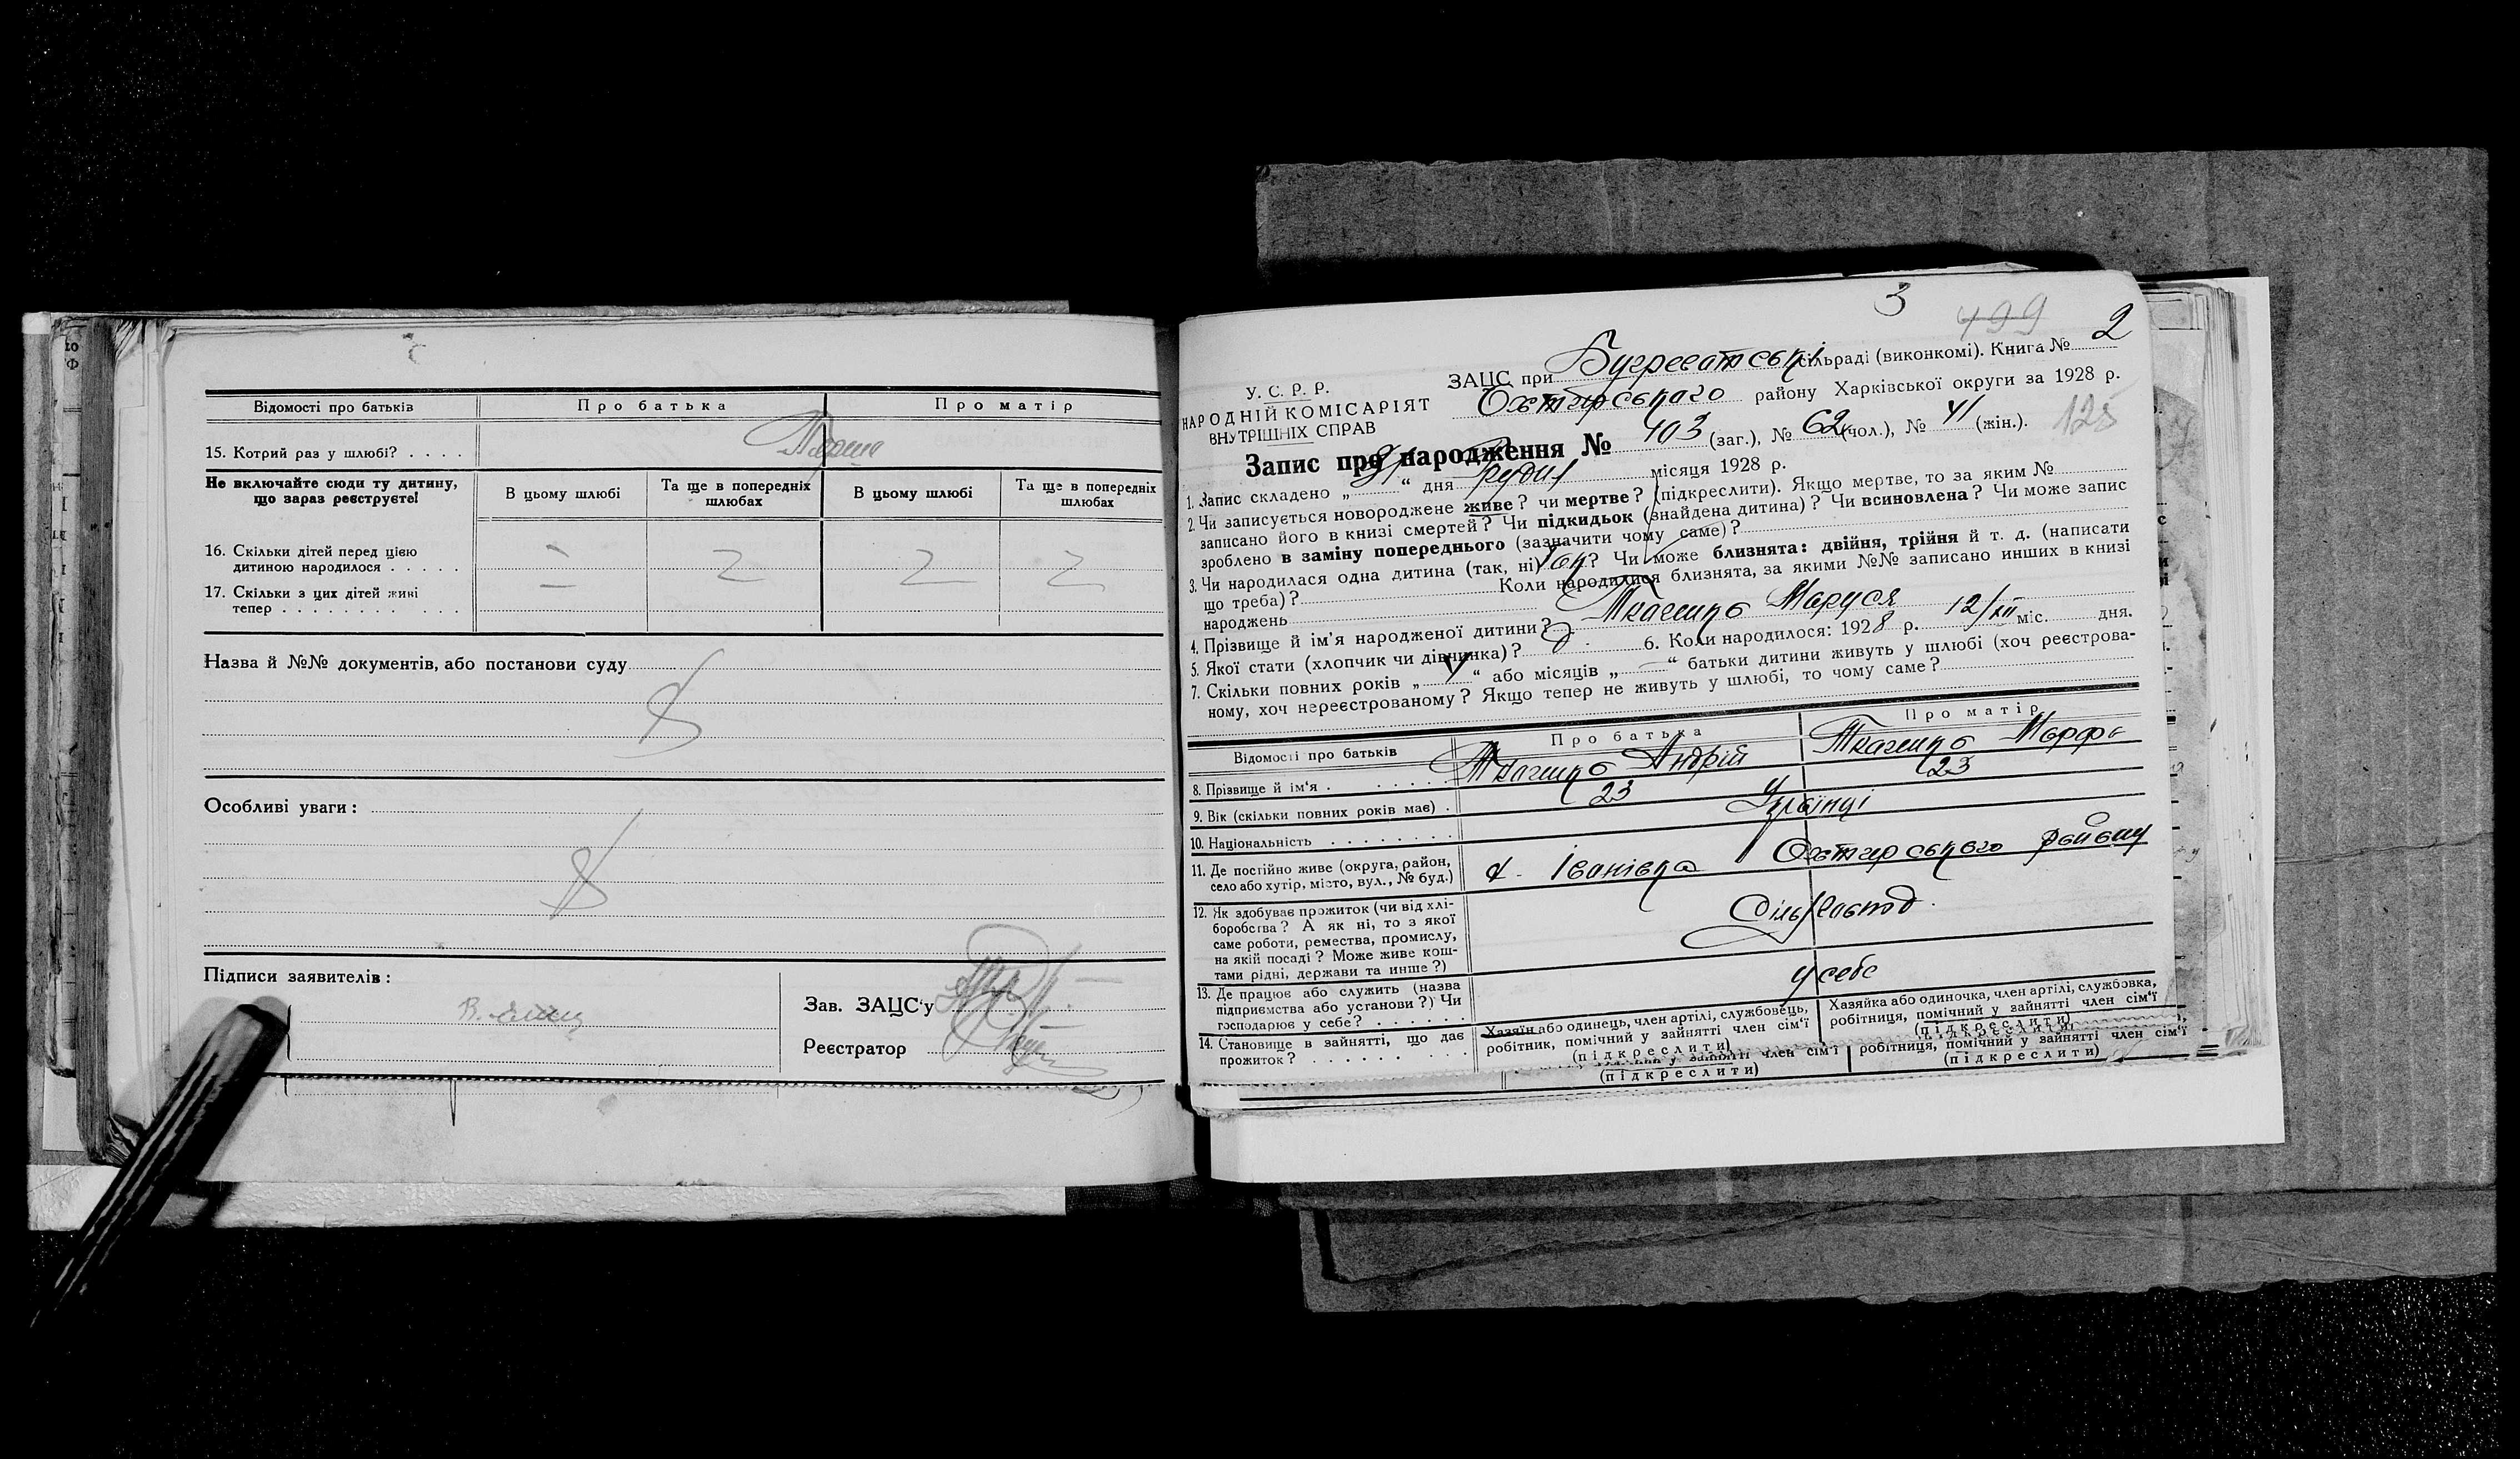 Відомості про батьків
Про батька
Про матір
15. Котрий раз у шлюбі? . . . .
Перше
Не включайте сюди ту дитину,
що зараз реєструєте!
В цьому шлюбі
Та ще в попередніх
шлюбах
В цьому шлюбі
Та ще в попередніх
шлюбах
16. Скільки дітей перед цією
дитиною народилося . . . . .
17. Скільки з цих дітей живі
тепер . . . . . . . . . . .
Назва й №№ документів, або постанови суду
Особливі уваги:
Підписи заявителів:
Зав. ЗАЦС'у
Реєстратор
3
499
2
У. С. Р. Р.
НАРОДНІЙ КОМІСАРІЯТ
ВНУТРІШНІХ СПРАВ
ЗАЦС при сільраді (виконкомі). Книга №
Охтирського району Харківської округи за 1928 р.
125
Запис про народження № 103 (заг.), № 62 (чол.), № 41 (жін.).
1. Запис складено „ “ дня Грудня місяця 1928 р.
2. Чи записується новороджене живе? чи мертве? (підкреслити). Якщо мертве, то за яким №
записано його в книзі смертей? Чи підкидьок (знайдена дитина)? Чи всиновлена? Чи може запис
зроблено в заміну попереднього (зазначити чому саме)?
3. Чи народилася одна дитина (так, ні) Так? Чи може близнята: двійня, трійня й т. д. (написати
що треба)? Коли народилися близнята, за якими №№ записано инших в книзі
народжень
4. Прізвище й ім'я народженої дитини? Ткаченко Маруся
5. Якої стати (хлопчик чи дівчинка)? д. 6. Коли народилося: 1928 р. 12/XII міс. дня.
7. Скільки повних років „ “ або місяців „—“ батьки дитини живуть у шлюбі (хоч реєстрова-
ному, хоч нереєстрованому? Якщо тепер не живуть у шлюбі, то чому саме?
Відомості про батьків
Про батька
Про матір
8. Прізвище й ім'я . . . . . Ткаченко Андрій Ткаченко Марфа
9. Вік (скільки повних років має) . 23 23
10. Національність . . . . . . . Українці
11. Де постійно живе (округа, район,
село або хутір, місто, вул., № буд.)
Іванівка Охтирського району
12. Як здобуває прожиток (чи від хлі-
боробства? А як ні, то з якої
саме роботи, ремества, промислу,
на якій посаді? Може живе кош-
тами рідні, держави та инше?)
Сільгоспод.
13. Де працює або служить (назва
підприємства або установи?) Чи
господарює у себе? . . . . . .
у себе
14. Становище в зайнятті, що дає
прожиток? . . . . . . . . . .
Хазяїн або одинець, член артілі, службовець,
робітник, помічний у зайнятті член сім'ї
(підкреслити)
Хазяйка або одиночка, член артілі, службовка,
робітниця, помічний у зайнятті член сім'ї
(підкреслити)
член сім'ї
(підкреслити)
робітниця, помічний у зайнятті член сім'ї
(підкреслити)